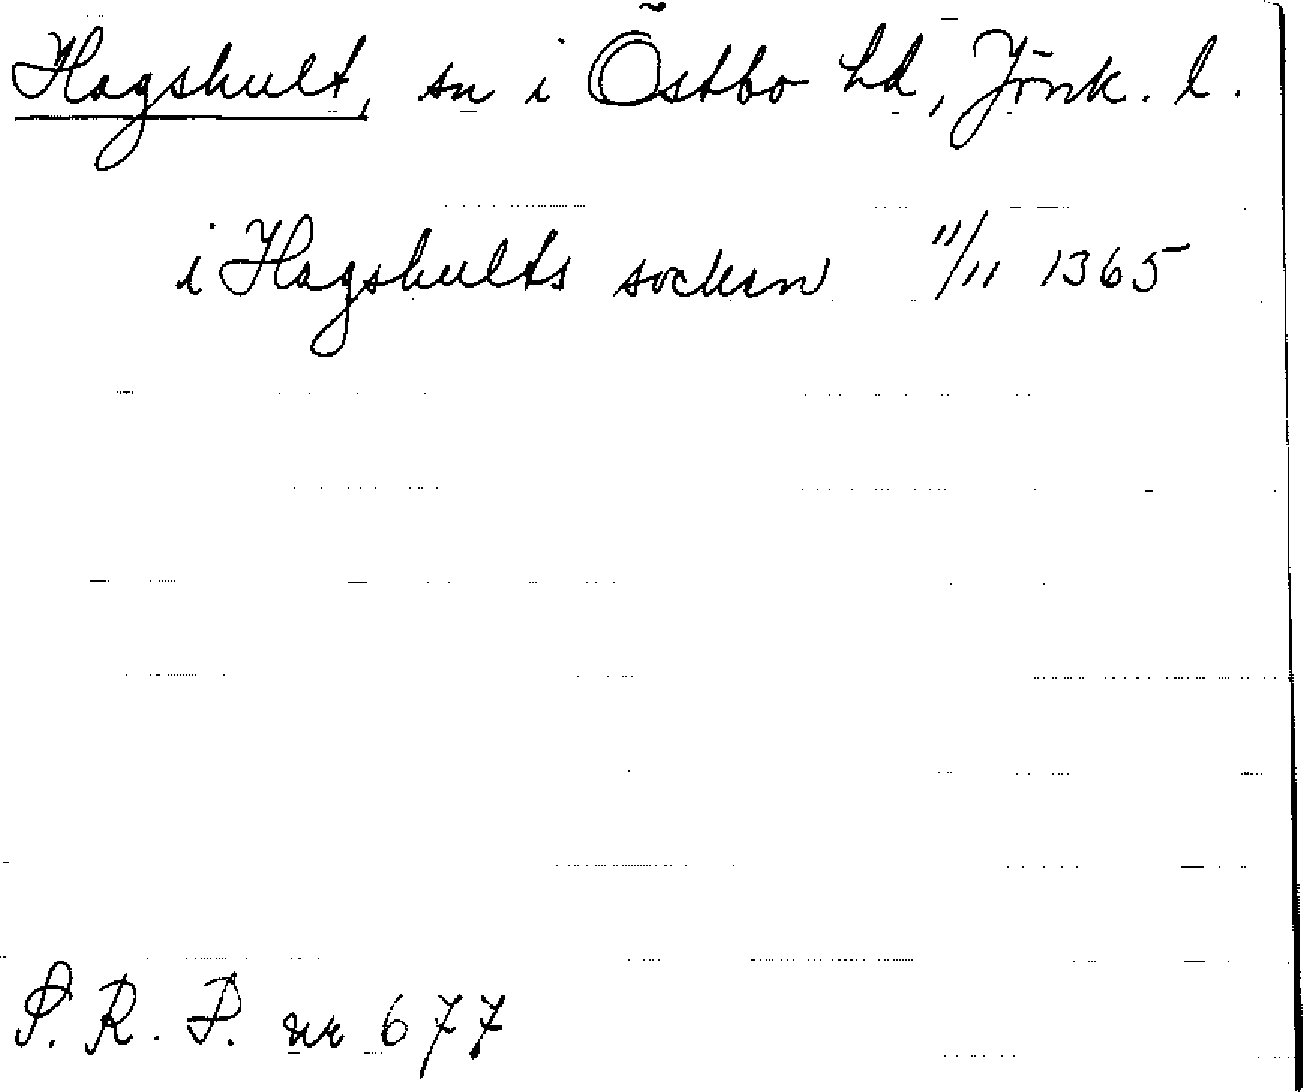 Hagshult, sn i Östbo hd, Jönk. l.
i Hagshults socken 11/11 1365
S. R. P. nr 677